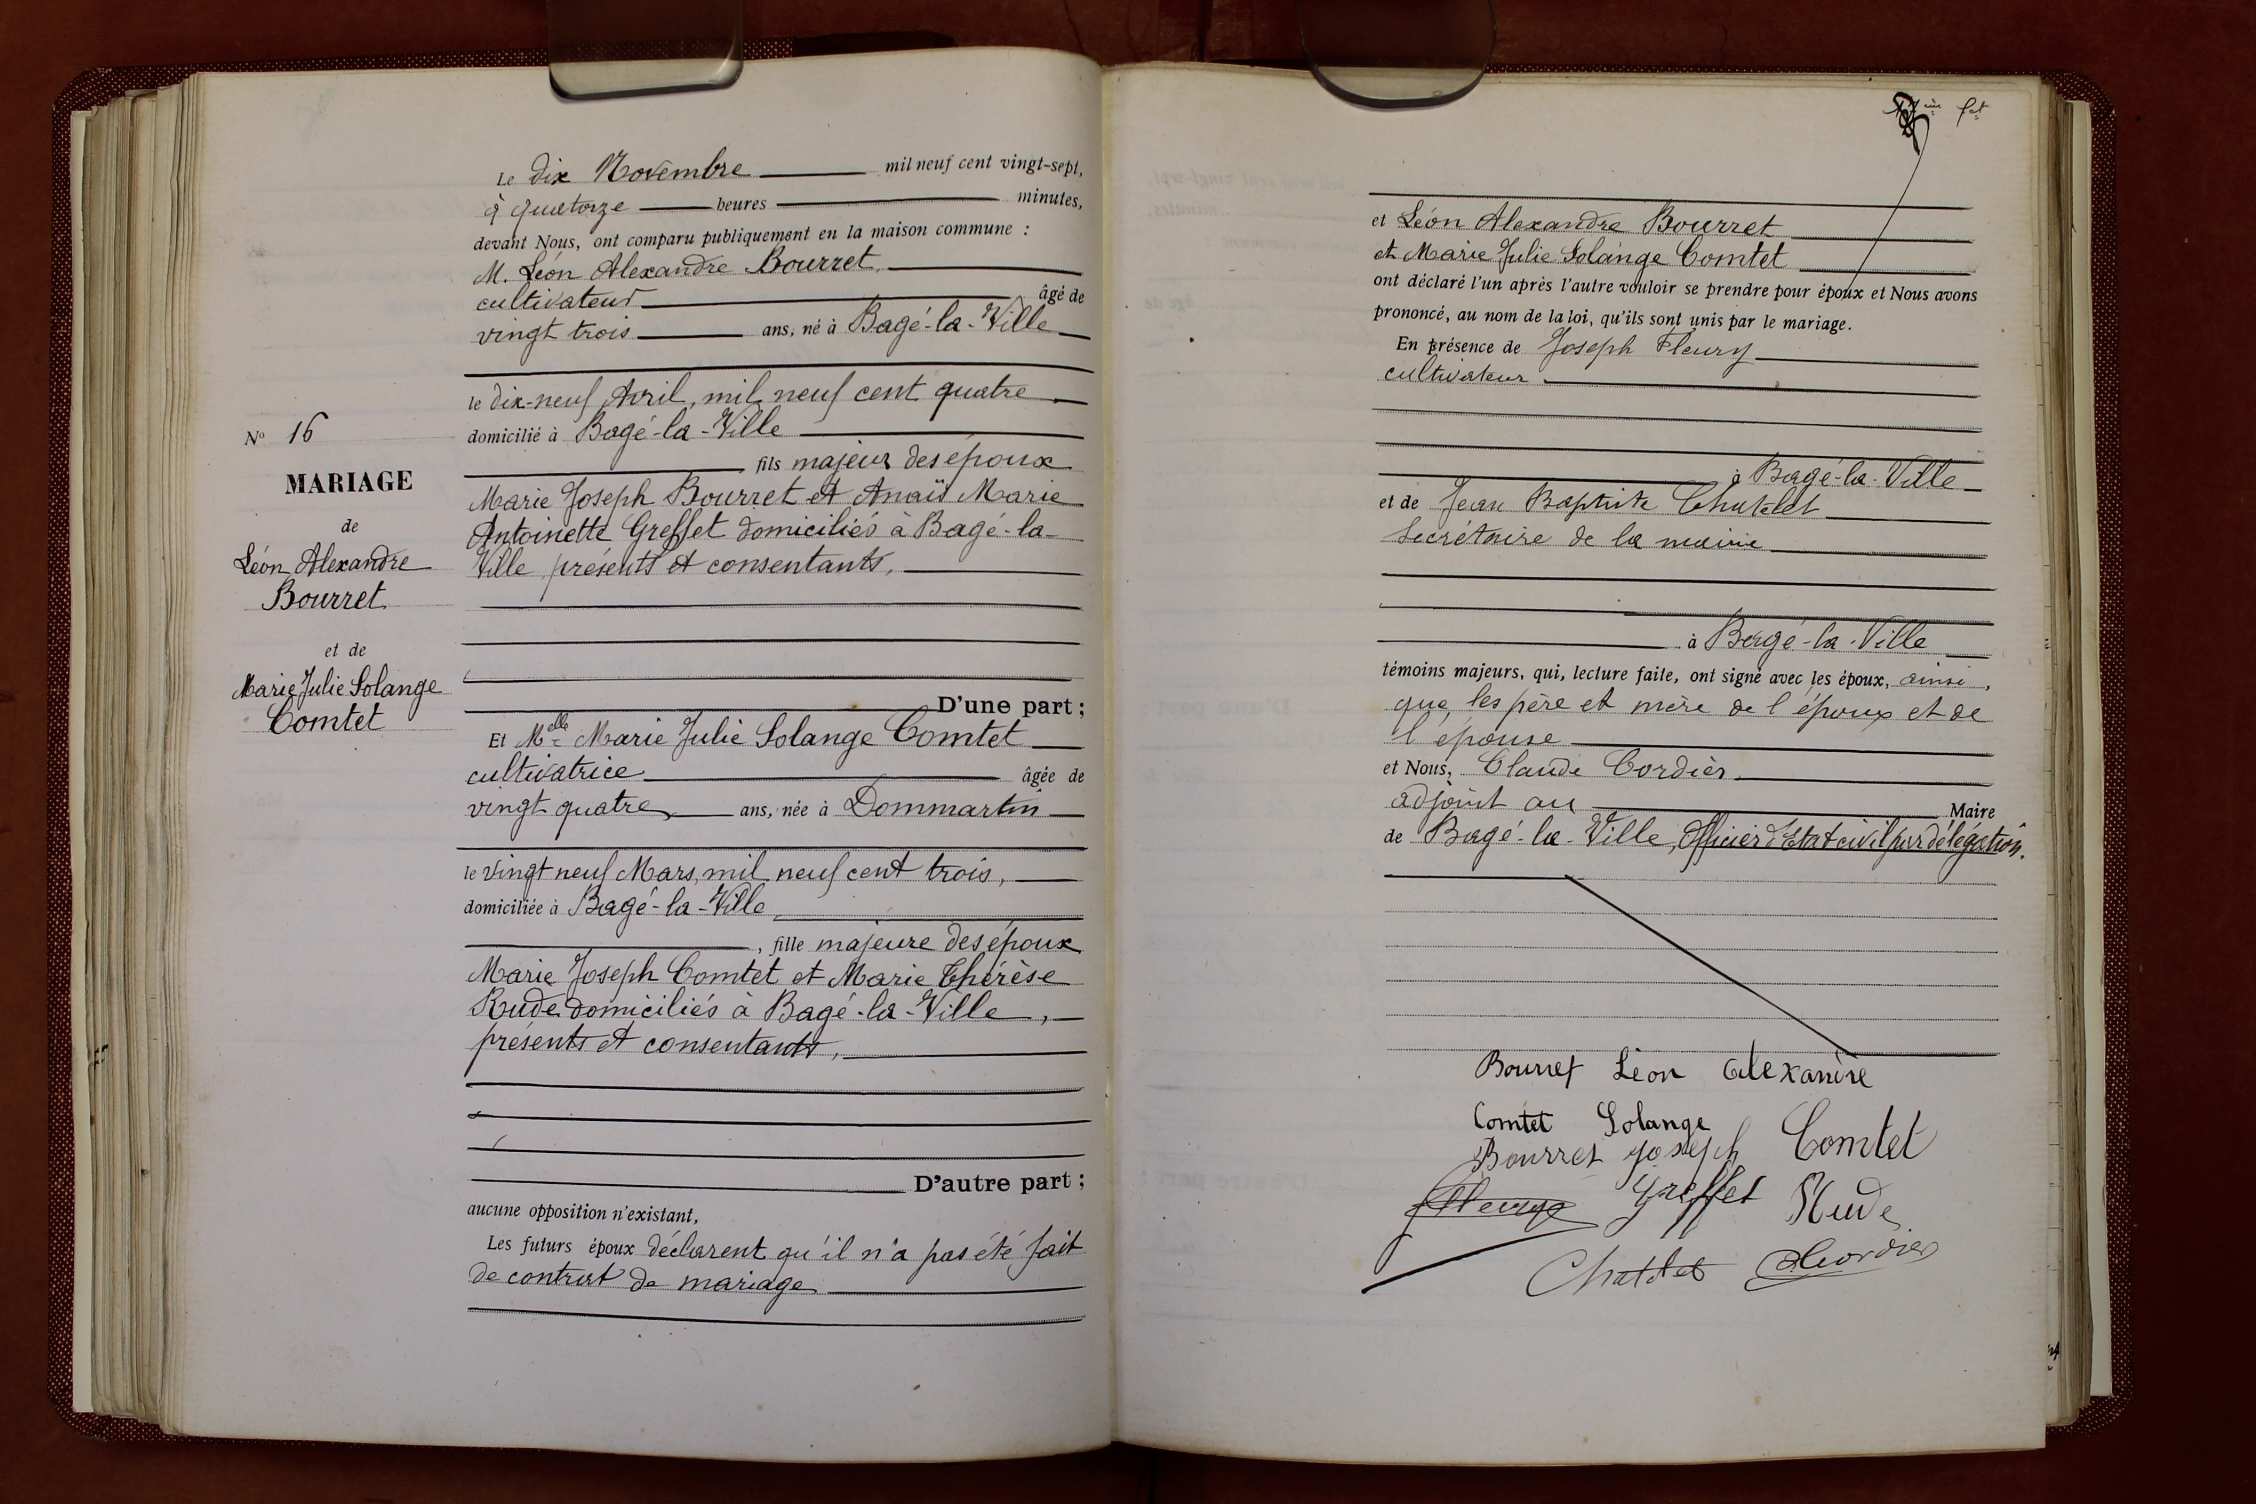 N° 16
MARIAGE
de
Léon Alexandre
Bourret
et de
Marie Julie Solange
Comtet
Le dix Novembre mil neuf cent vingt-sept,
à quatorze heures minutes,
devant Nous, ont comparu publiquement en la maison commune :
M. Léon Alexandre Bourret
cultivateur âgé de
vingt trois ans, né à Bagé-la-Ville
le dix-neuf Avril, mil neuf cent quatre
domicilié à Bagé-la-Ville
fils majeur des époux
Marie Joseph Bourret et Anaïs Marie
Antoinette Greffet domiciliés à Bagé-la-
Ville présents et consentants,
D'une part ;
Et Melle Marie Julie Solange Comtet
cultivatrice âgée de
vingt quatre ans, née à Dommartin
le vingt neuf Mars, mil neuf cent trois,
domiciliée à Bagé-la-Ville
, fille majeure des époux
Marie Joseph Comtet et Marie Thérèse
Rude domiciliés à Bagé-la-Ville,
présents et consentants,
D'autre part ;
aucune opposition n'existant,
Les futurs époux déclarent qu'il n'a pas été fait
de contrat de mariage
et Léon Alexandre Bourret
et Marie Julie Solange Comtet
ont déclaré l'un après l'autre vouloir se prendre pour époux et Nous avons
prononcé, au nom de la loi, qu'ils sont unis par le mariage.
En présence de Joseph Fleury
cultivateur
à Bagé-la-Ville
et de Jean Baptiste Chatelet
Secrétaire de la mairie
à Bagé-la-Ville
témoins majeurs, qui, lecture faite, ont signé avec les époux, ainsi,
que, les père et mère de l'époux et de
l'épouse
et Nous, Claude Cordier
adjoint au Maire
de Bagé-la-Ville, Officier d'Etat civil par délégation.
Bourret Léon Alexandre
Comtet Solange
Bourret Joseph Comtet
Fleury Greffet Rude
Chatelet Cordier